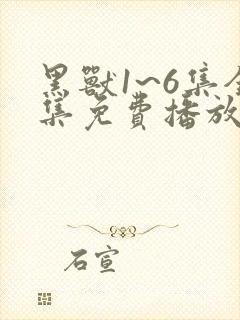 黑獸1~6集全
集免費播放
石宣